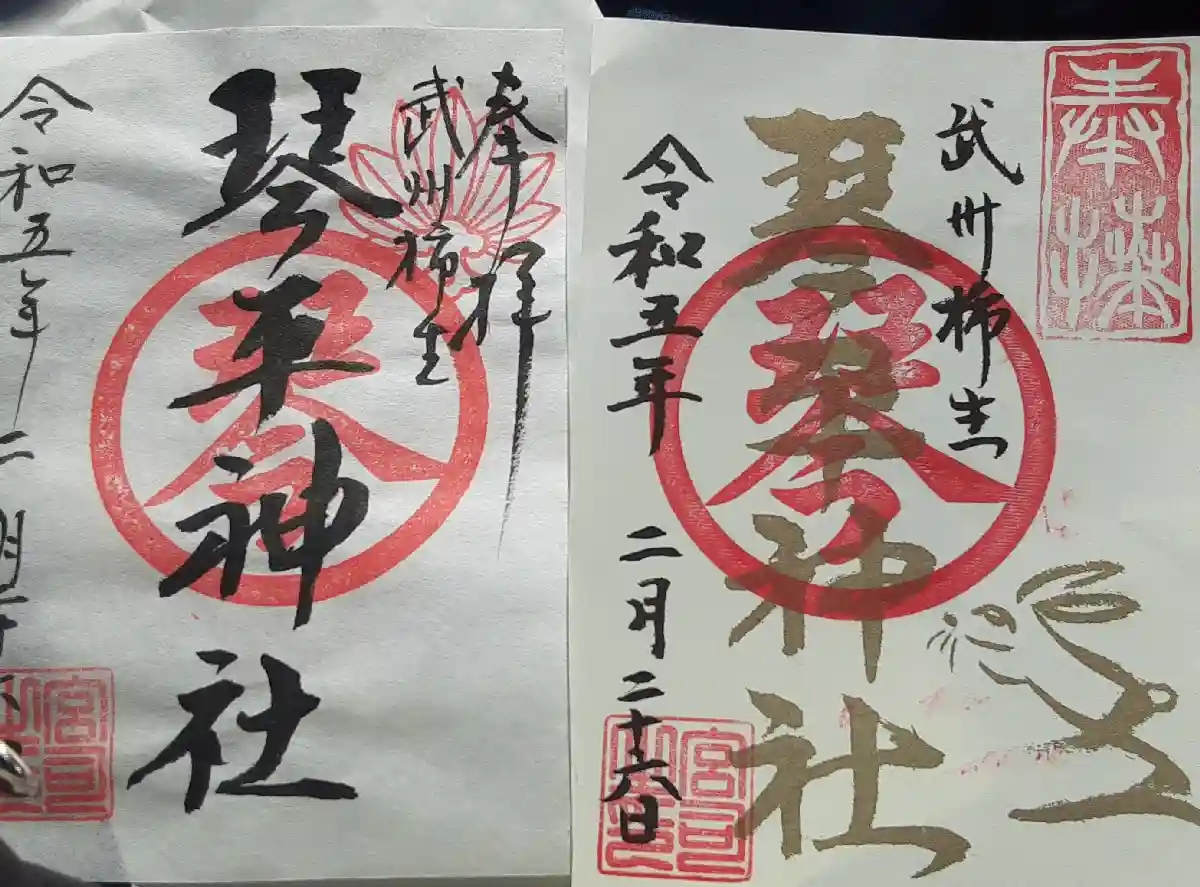 奉拝
武州柿生
琴平神社
令和五年二月二十
宮司
奉拝
武州柿生
琴平神社
令和五年二月二十六日
宮司